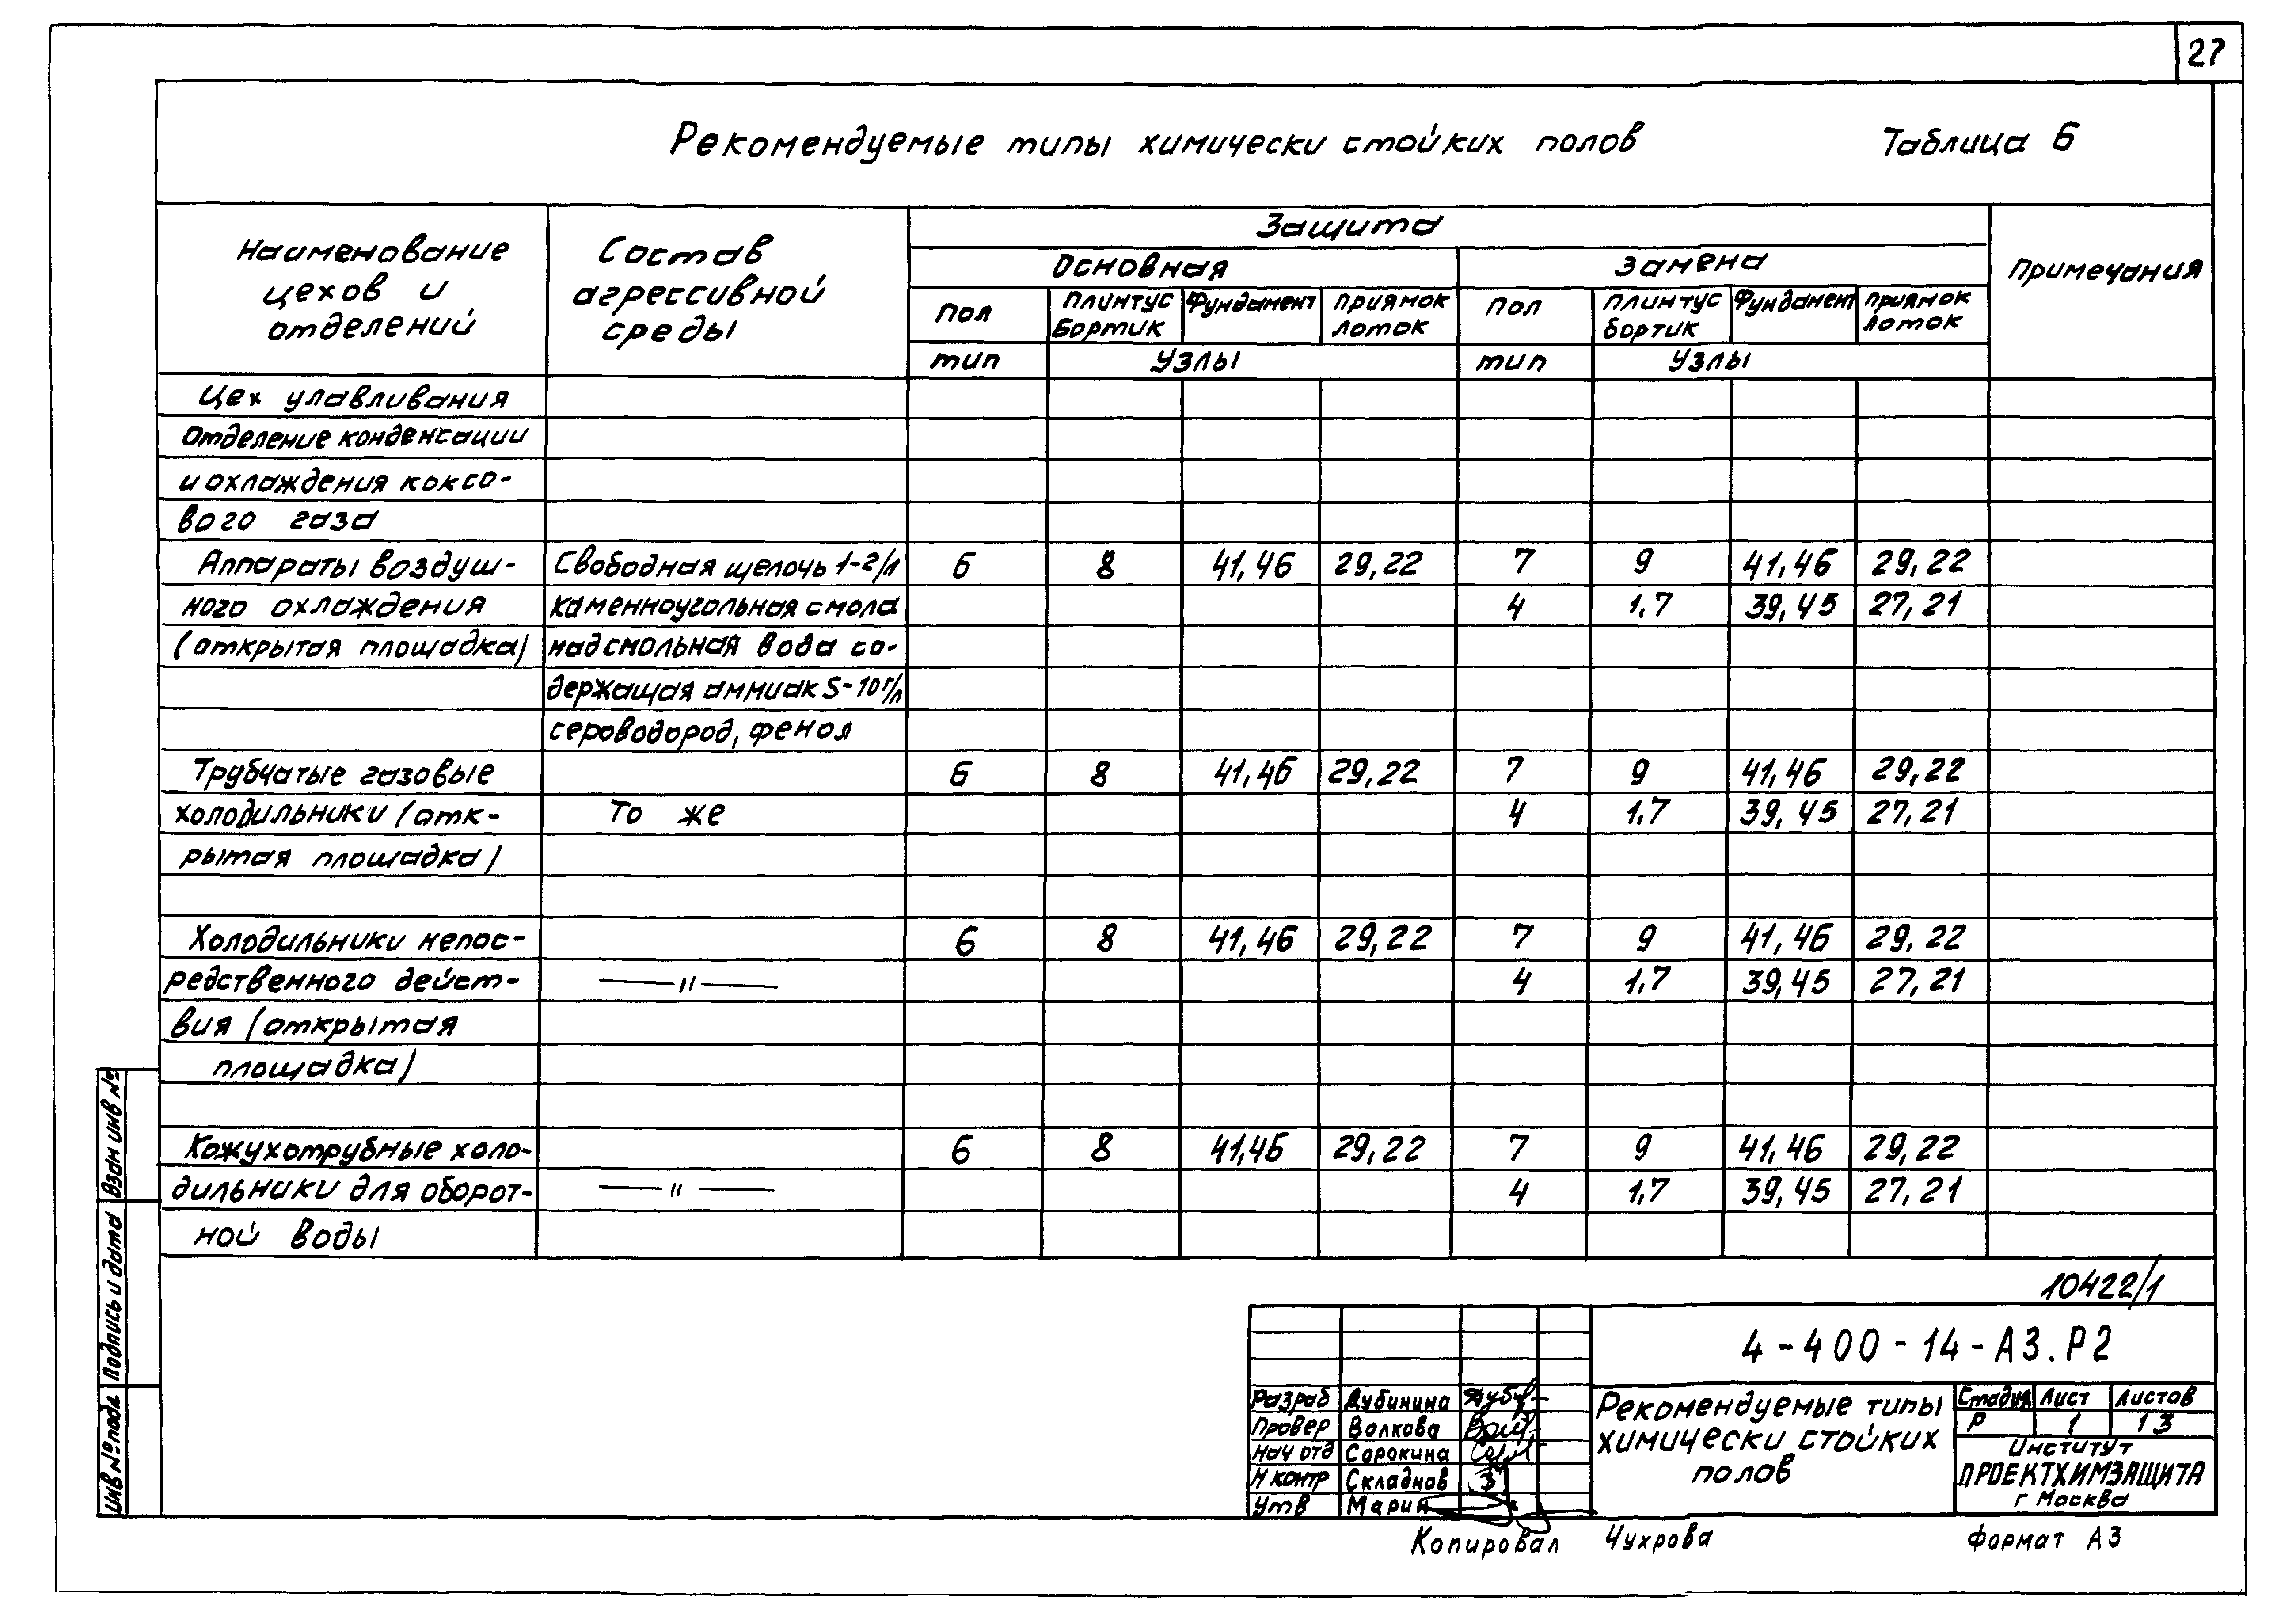 27
Рекомендуемые типы химически стойких полов Таблица 6
Наименование цехов и отделений
Состав агрессивной среды
Защита
Примечания
Основная Замена
Пол Плинтус Бортик Фундамент Приямок Лоток Пол Плинтус бортик Фундамент Приямок Лоток
тип Узлы тип Узлы
Цех улавливания
Отделение конденсации
и охлаждения коксо-
вого газа
Аппараты воздуш- Свободная щелочь 1-2/л 6 8 41,46 29,22 7 9 41,46 29,22
ного охлаждения каменноугольная смола 4 1.7 39,45 27,21
(открытая площадка) надсмольная вода со-
держащая аммиак 5-10 г/л
сероводород, фенол
Трубчатые газовые 6 8 41,46 29,22 7 9 41,46 29,22
холодильники (отк- То же 4 1.7 39,45 27,21
рытая площадка)
Холодильники непос- 6 8 41,46 29,22 7 9 41,46 29,22
редственного дейст- —"— 4 1,7 39,45 27,21
вия (открытая
площадка)
Кожухотрубные холо- 6 8 41,46 29,22 7 9 41,46 29,22
дильники для оборот- —"— 4 1,7 39,45 27,21
ной воды
10422/1
4-400-14-АЗ.Р2
Разраб Дубинина
Провер Волкова
Нач отд Сорокина
Н контр Складнов
Утв Марин
Рекомендуемые типы
химически стойких
полов
Стадия Лист Листов
Р 1 13
Институт
ПРОЕКТХИМЗАЩИТА
г Москва
Копировал Чухрова Формат А3
Взан инв №
Подпись и дата
Инв № подл